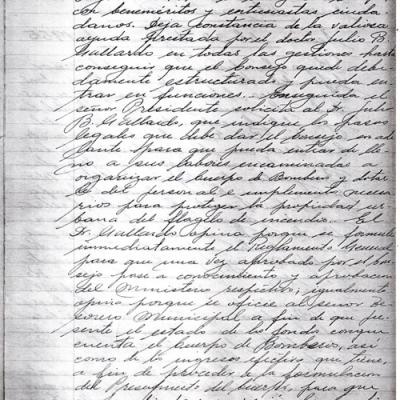 con beneméritos y entusiastas ciuda
danos. Deja constancia de la valiosa
ayuda prestada por el doctor Julio B.
Gallardo en todas las gestiones hasta
conseguir que el Consejo quede debi
damente estructurado y pueda en
trar en funciones. Enseguida el
señor Presidente solicita al Dr. Julio
B. Gallardo, que indique los pasos
legales que debe dar el Consejo en ade
lante para que pueda entrar de lle
no a sus labores encaminadas a
organizar el Cuerpo de Bomberos y dotar
le del personal e implementos necesa
rios para proteger la propiedad ur
bana del flagelo de incendio. El
Dr. Gallardo opina porque se formule
inmediatamente el Reglamento General
para que una vez aprobado por el Con
sejo pase a conocimiento y aprobación
del Ministerio respectivo; igualmente
opina porque se oficie al señor Te
sorero Municipal a fin de que pre
sente el estado de los fondos con que
cuenta el Cuerpo de Bomberos, así
como de los ingresos efectivos que tiene,
a fin de proceder a la formulación
del Presupuesto del Cuerpo, para que